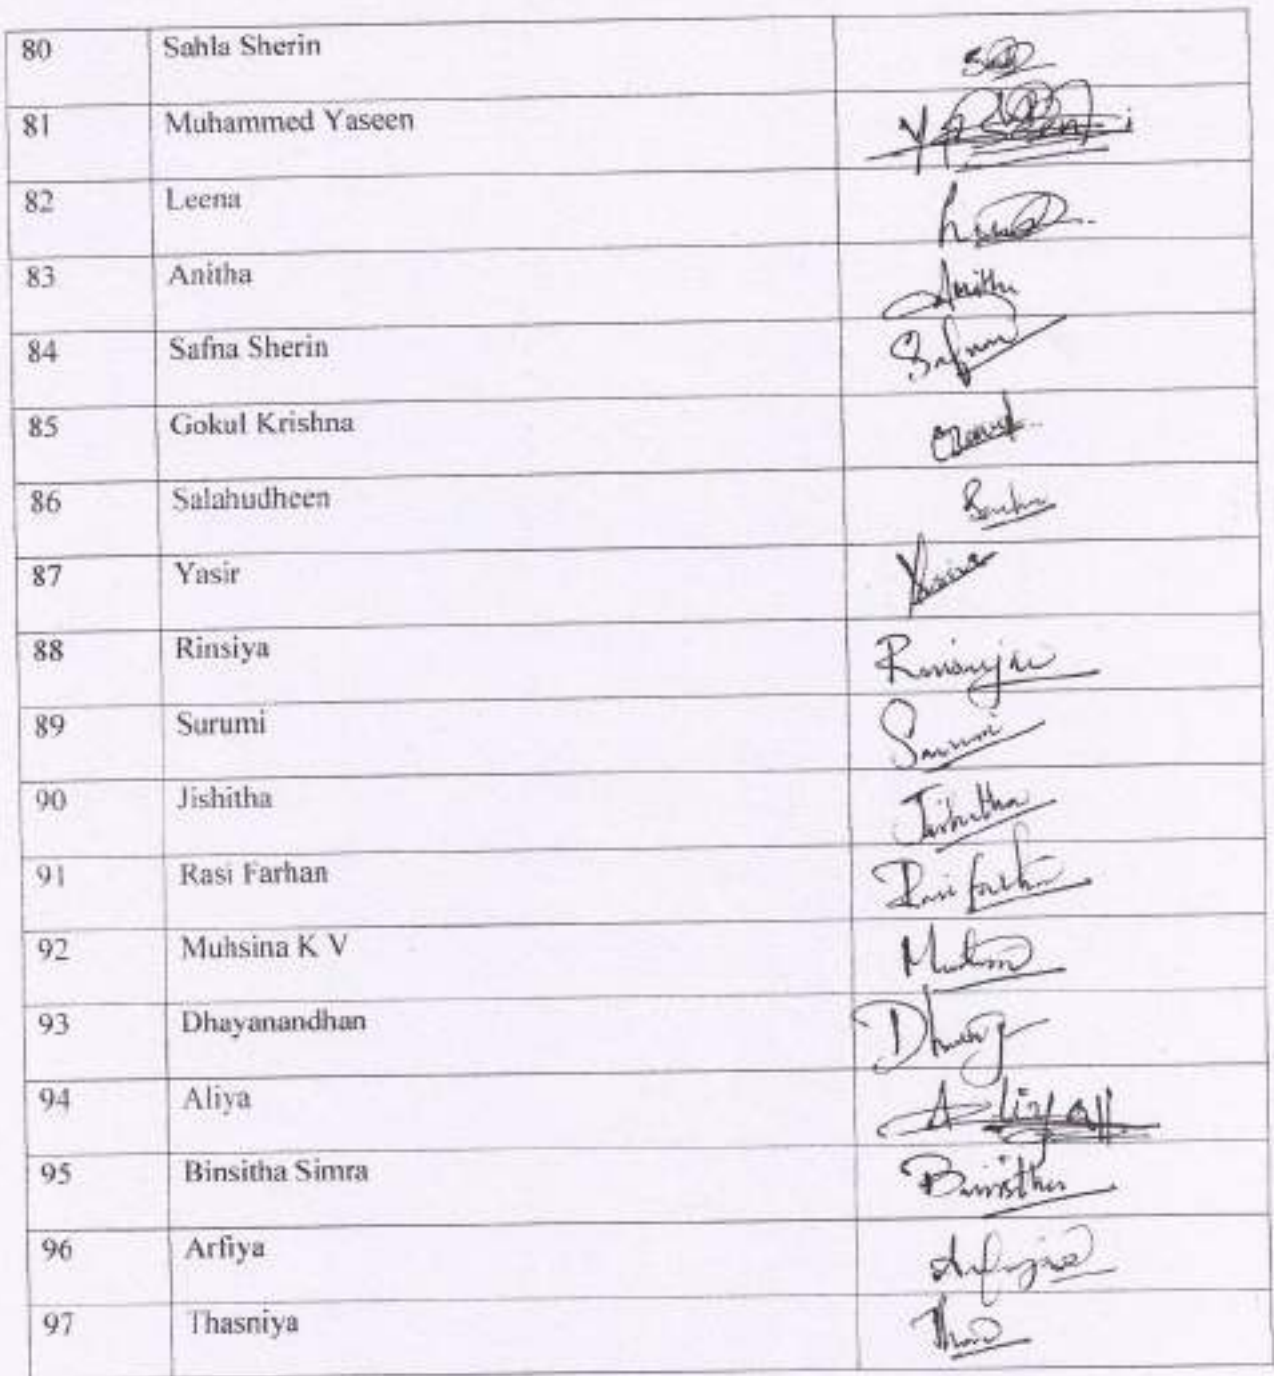 80 Sahla Sherin
81 Muhammed Yaseen
82 Leena
83 Anitha Anitha
84 Safna Sherin Safna
85 Gokul Krishna
86 Salahudheen
87 Yasir
88 Rinsiya
89 Surumi Surumi
90 Jishitha Jishitha
91 Rasi Farhan Rasi farhan
92 Muhsina K V
93 Dhayanandhan
94 Aliya Aliya
95 Binsitha Simra Binsitha
96 Arfiya Arfiya
97 Thasniya